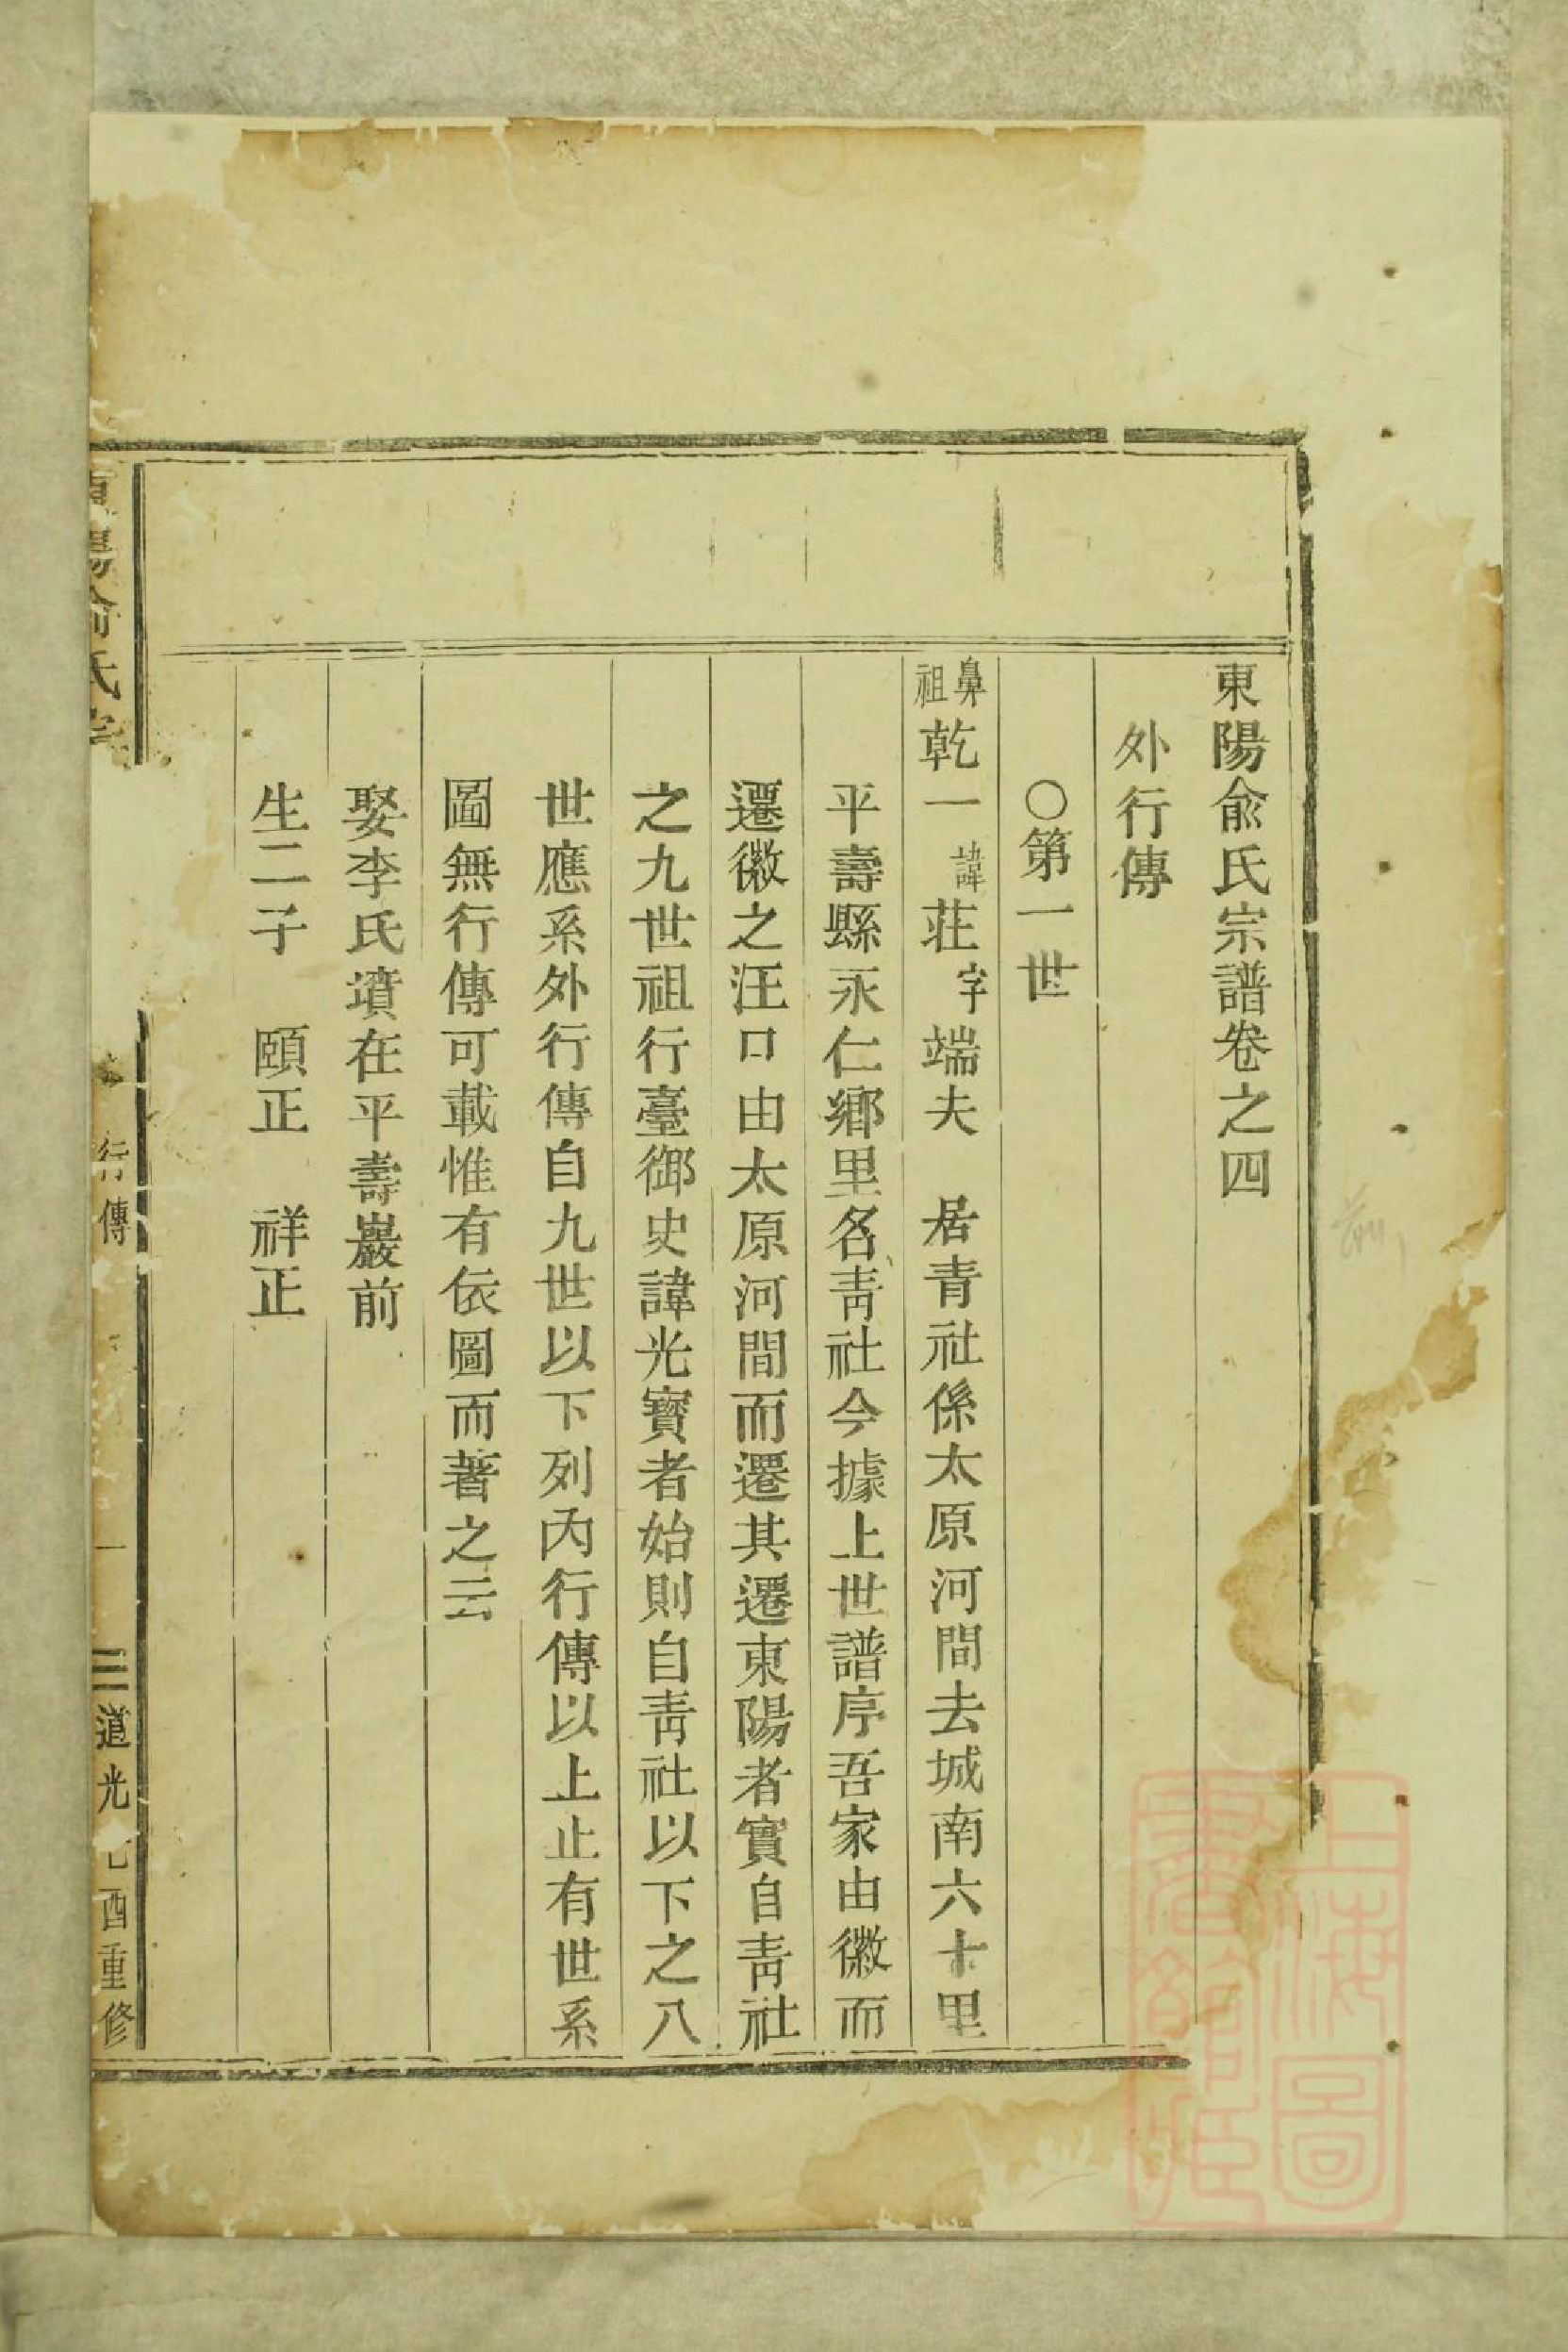 東陽俞氏宗譜卷之四
外行傳
○第一世
鼻祖乾一諱莊字端夫　居青社係太原河間去城南六十里
平壽縣永仁鄉里名靑社今據上世譜序吾家由徽而
遷徽之汪口由太原河間而遷其遷東陽者實自靑社
之九世祖行臺御史諱光寶者始則自靑社以下之八
世應系外行傳自九世以下列內行傳以上止有世系
圖無行傳可載惟有依圖而著之云
娶李氏墳在平壽巖前
生二子　頤正　祥正
東陽俞氏宗
行傳
一
道光己酉重修
上海圖書館藏